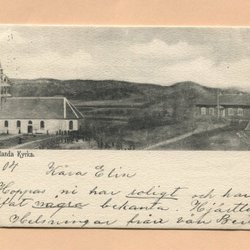 landa Kyrka.
04 Kära Elin
Hoppas ni har soligt och har
flet några bekanta Hjärtl
Helsningar från vän Be